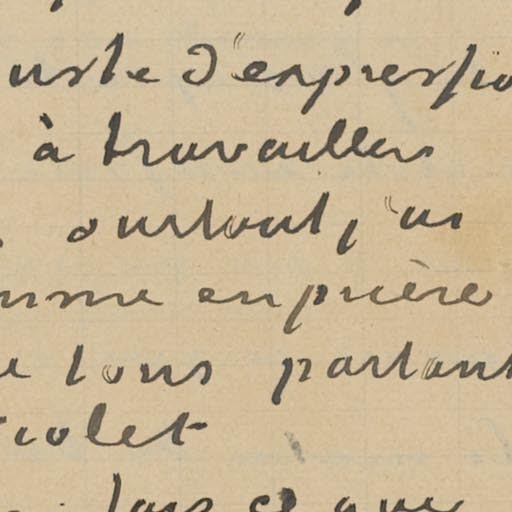 uste d'expressio
à travailler
surtout, un
mme en prière
tons partant
violet
ce que